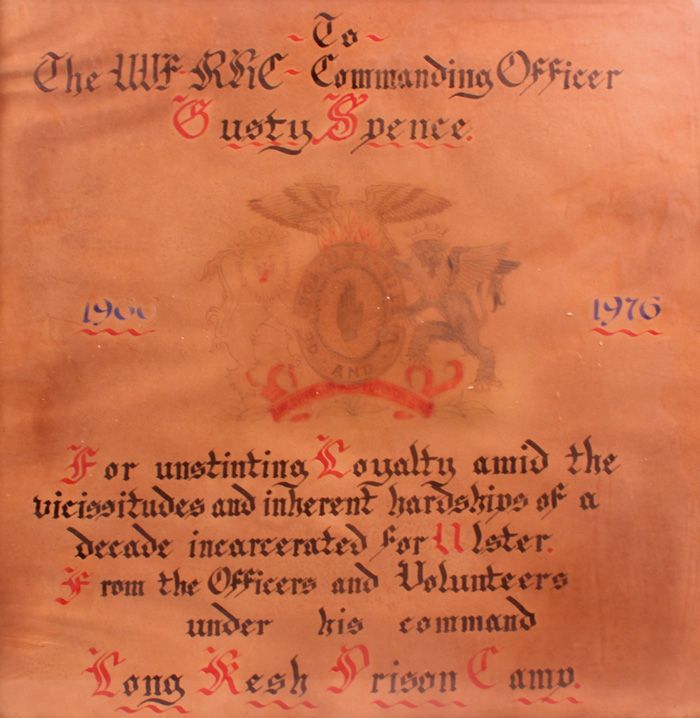 ~ To ~
The UVF RHC - Commanding Officer
Gusty Spence.
1966 1976
AND
For unstinting Loyalty amid the
vicissitudes and inherent hardships of a
decade incarcerated for Ulster.
From the Officers and Volunteers
under his command
Long Kesh Prison Camp.